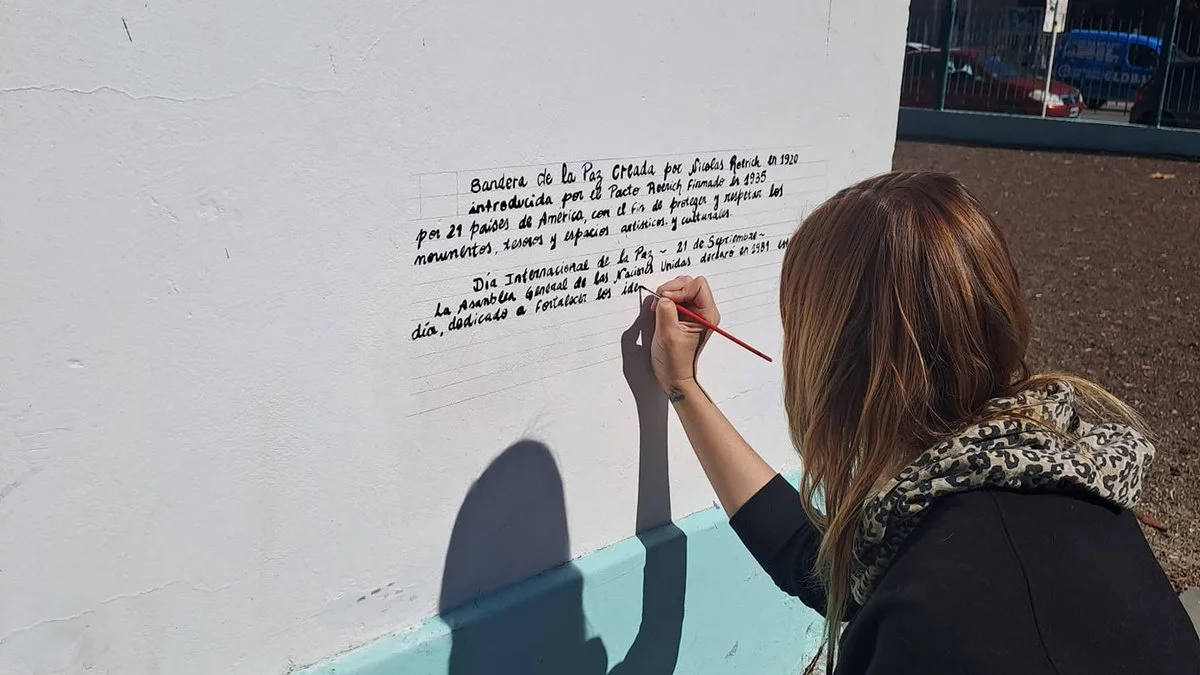 Bandera de la Paz creada por Nicolas Roerich en 1920
introducida por el Pacto Roerich Firmado en 1935
por 21 países de América, con el fin de proteger y respetar los
monumentos, tesoros y espacios artísticos y culturales.
Día Internacional de la Paz ~ 21 de Septiembre~
La Asamblea General de las Naciones Unidas declaró en 1981
día, dedicado a Fortalecer los ide